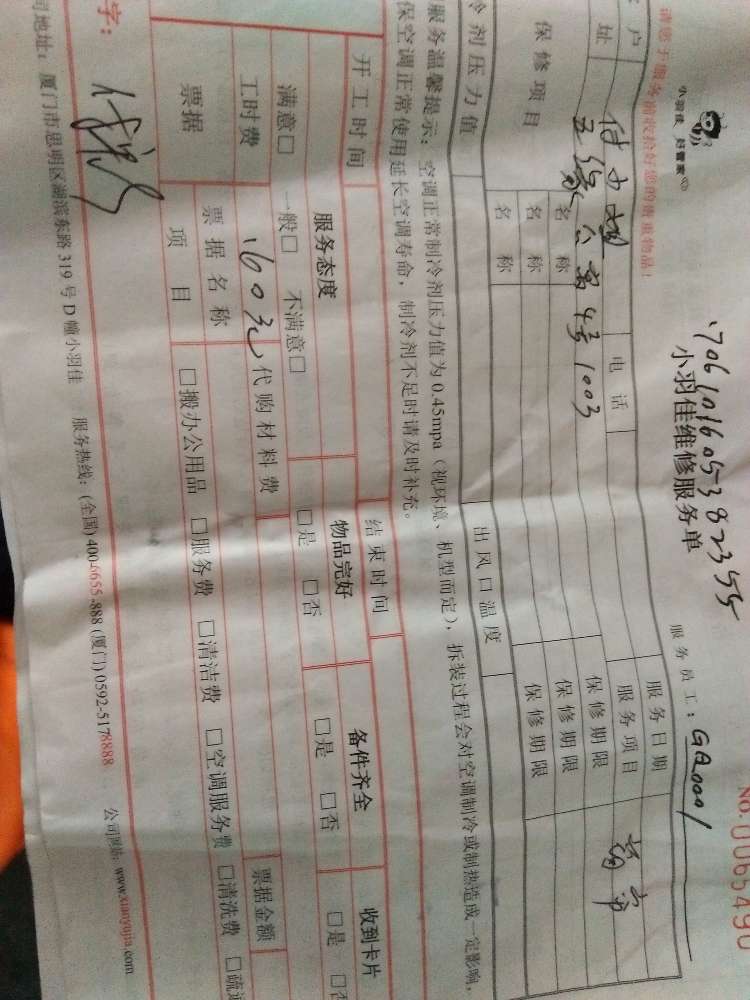 小羽佳 好管家
1706101605382355
小羽佳维修服务单
NO.0065490
请您于服务前收拾好您的贵重物品!
服务员工: GA0001
户
电话
服务日期
址
4号1003
服务项目
保修项目
名称
保修期限
名称
保修期限
名称
保修期限
冷剂压力值
出风口温度
服务温馨提示: 空调正常制冷剂压力值为0.45mpa (视环境、机型而定), 拆装过程会对空调制冷或制热造成一定影响,
保空调正常使用延长空调寿命, 制冷剂不足时请及时补充。
开工时间
结束时间
服务态度
物品完好
备件齐全
收到卡片
满意□ 一般□ 不满意□
□是 □否
□是 □否
□是 □否
工时费
160元
代购材料费
票据
票据名称
票据金额
项目
□搬办公用品 □服务费 □清洁费 □空调服务费 □清洗费 □疏通
字:
司地址: 厦门市思明区湖滨东路319号D幢小羽佳 服务热线: (全国) 400-6655-888 (厦门) 0592-5178888 公司网站: www.xiaoyujia.com